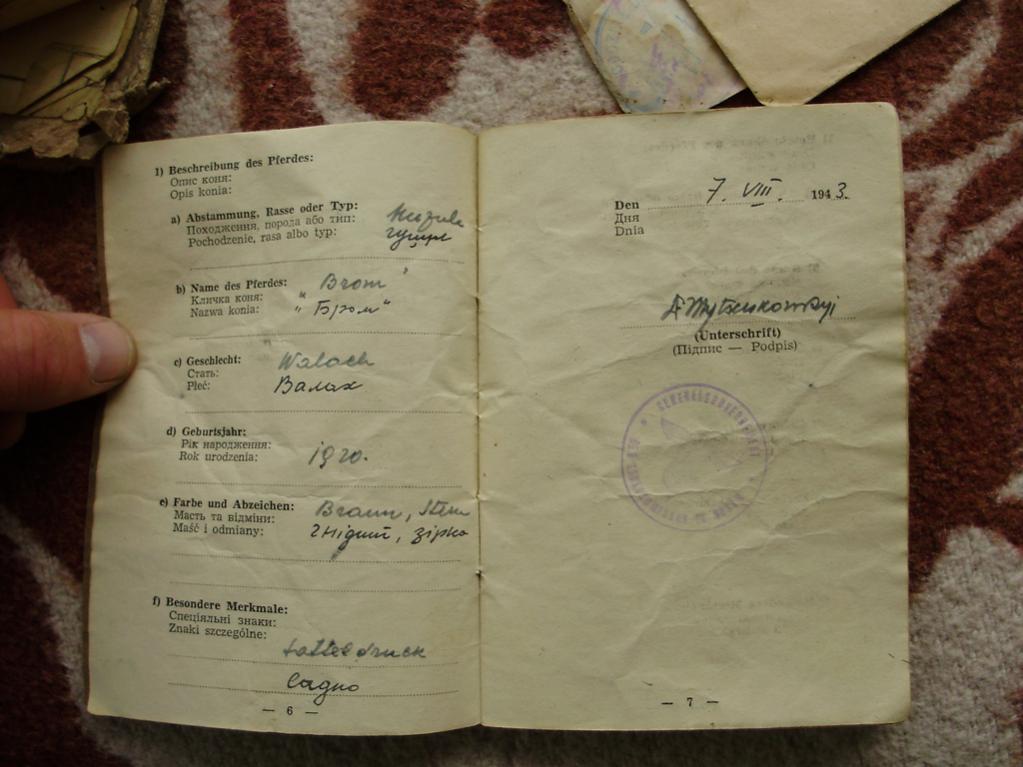 1) Beschreibung des Pferdes:
Опис коня:
Opis konia:
a) Abstammung, Rasse oder Typ:
Походження, порода або тип:
Pochodzenie, rasa albo typ:
b) Name des Pferdes: Brom"
Кличка коня:
Nazwa konia: "Бром"
c) Geschlecht: Walach
Стать:
Płeć: Валах
d) Geburtsjahr:
Рік народження:
Rok urodzenia: 1920.
e) Farbe und Abzeichen: Braun, Stern
Масть та відміни:
Maść i odmiany: гнідий, зірка
f) Besondere Merkmale:
Спеціяльні знаки:
Znaki szczególne:
Satteldruck
Садно
— 6 —
Den 7. VIII. 1943.
Дня
Dnia
(Unterschrift)
(Підпис — Podpis)
— 7 —